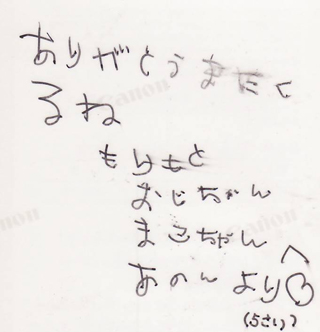 ありがとう またく
るね
もりもと
おじちゃん
まこちゃん
あのん より
(5さい)